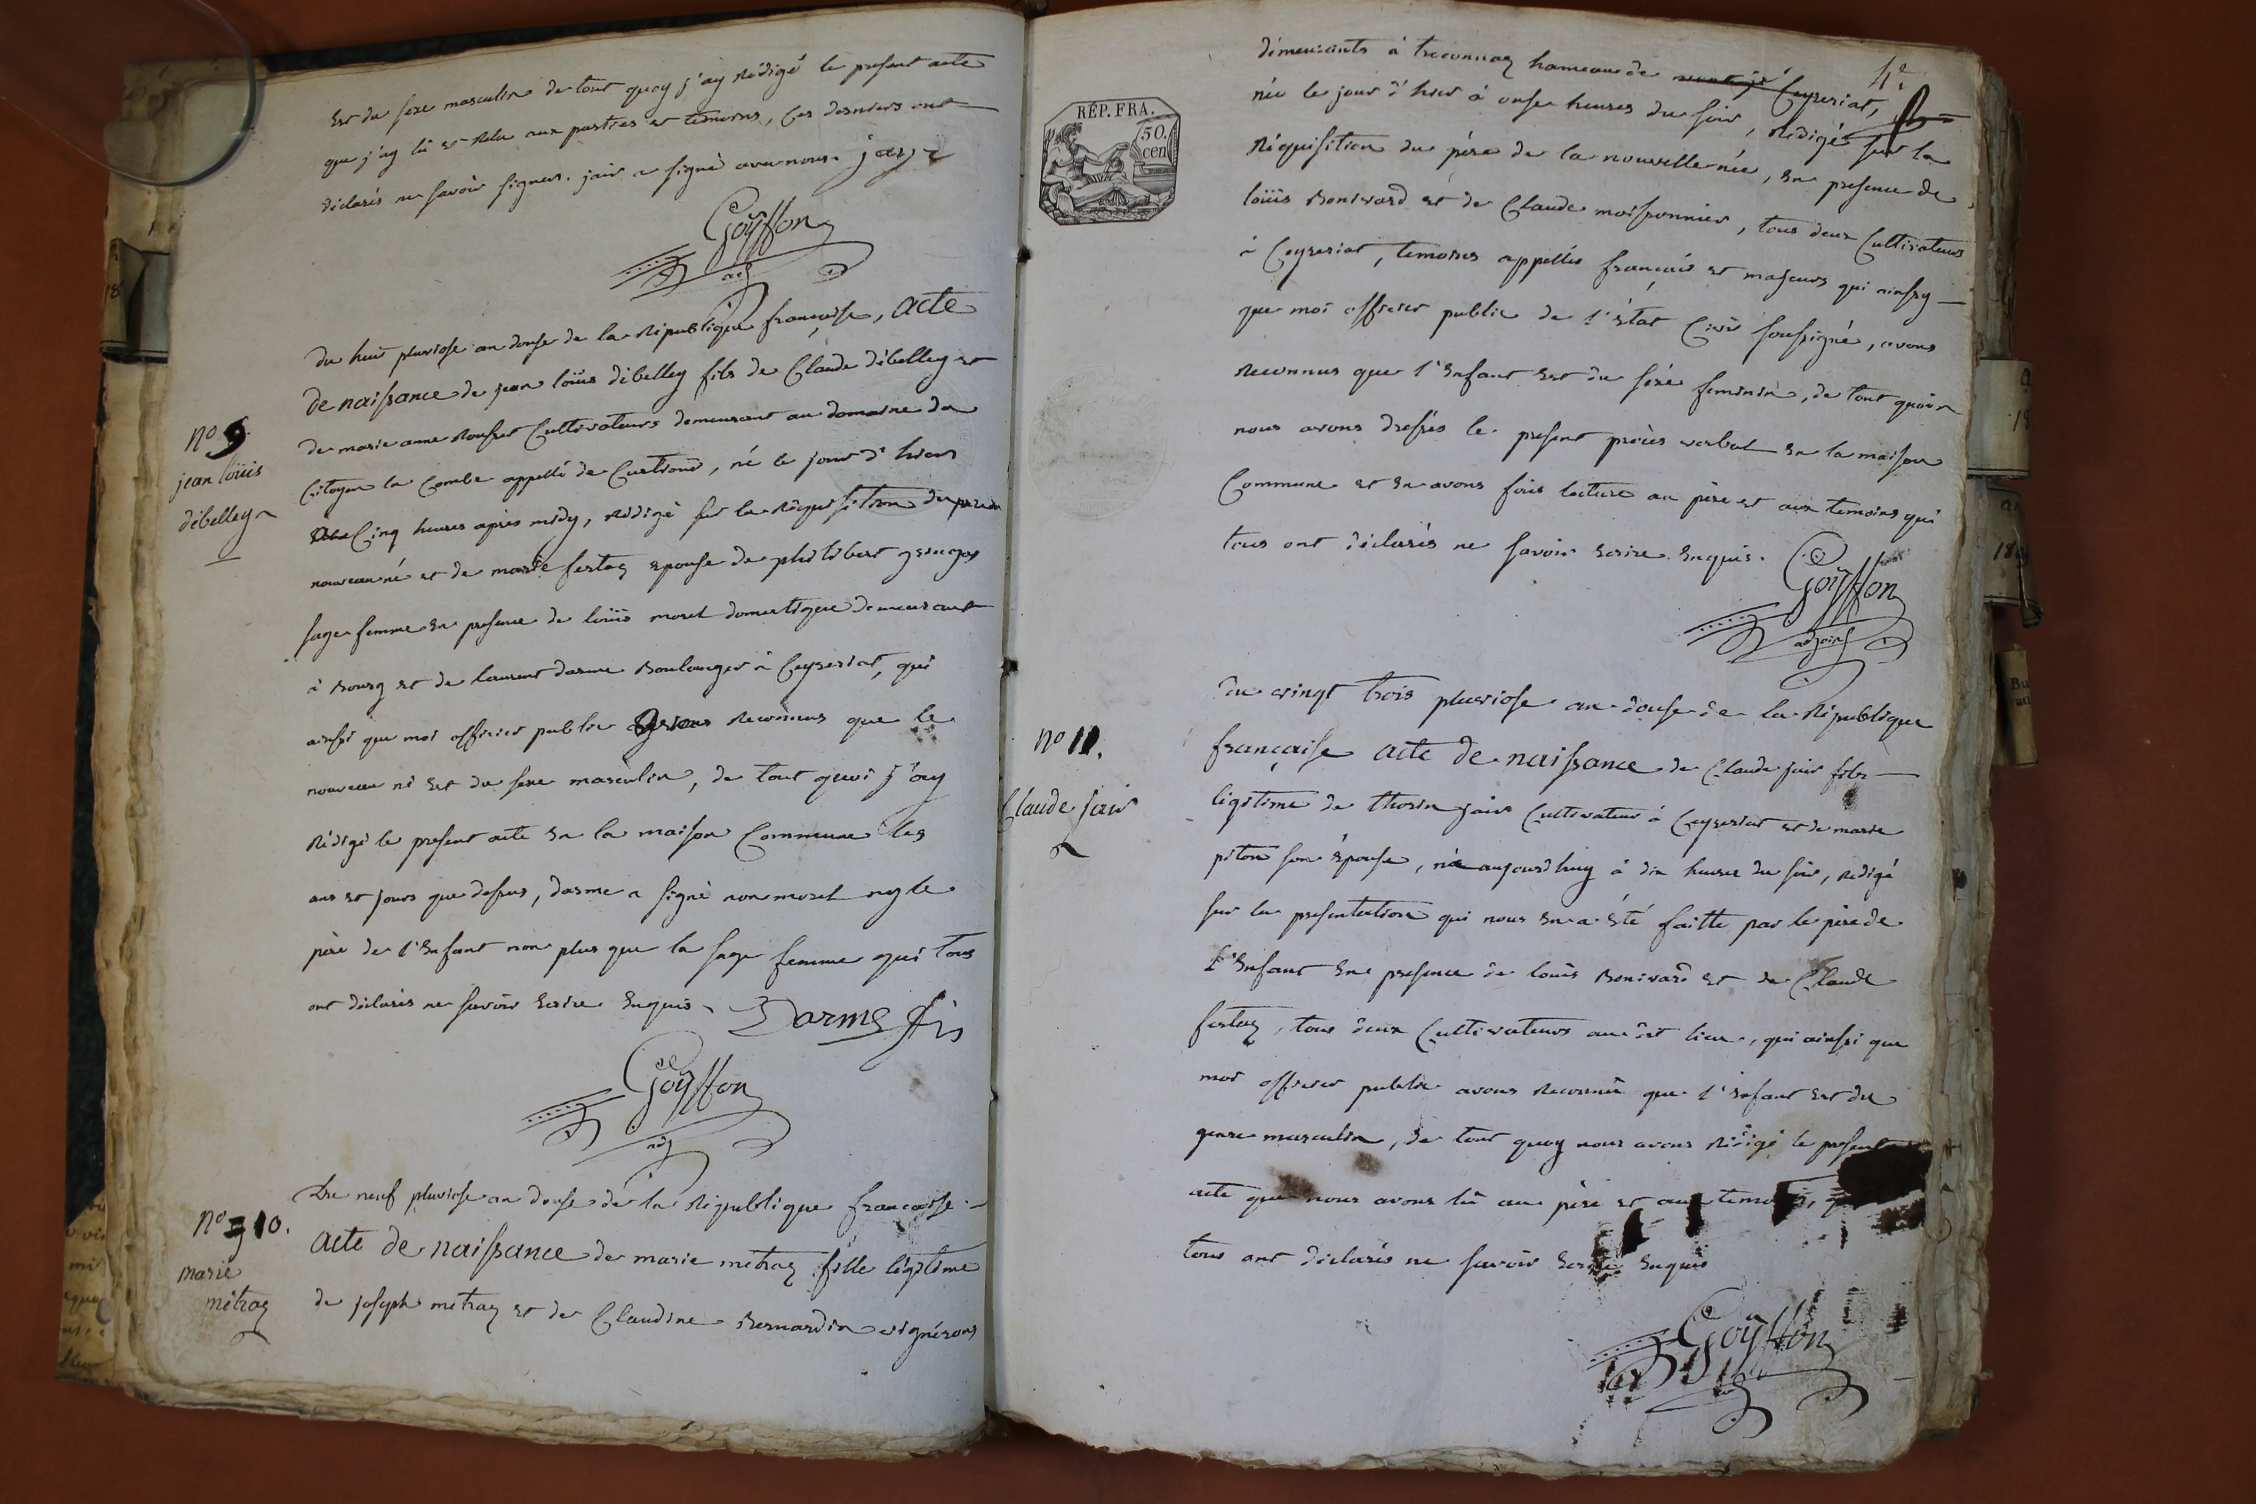 est du sexe masculin de tout quoy j'ay redigé le present acte
que j'ay lû et relu aux parties et temoins, ces derniers ont
déclarés ne savoir signer. jair a signé avec nous. jayr
Goÿffon
adj
du huit pluviose an douse de la république française, acte
de naissance de jean loüis débelley fils de Claude débelley et
de marie anne Cultivateurs demeurant au domaine du
Citoyen la Combe appellé de Curtioud, né le jour d'hier
Cinq heures après midy, rédigé sur la réquisition du père du
nouveau né et de marie fertay epouse de philibert
sage femme en presence de loüis morel domestique demeurant
à Bourg et de laurent darme Boulanger à Ceyseriat, qui
ainssi que moi officier public avons reconnus que le
nouveau né est du sexe masculin, de tout quoi j'ay
rédigé le present acte en la maison Commune les
ans et jours que dessus, darme a signé non morel ny le
père de l'enfant non plus que la sage femme qui tous
ont déclarés ne savoir ecrire enquis.
Darme fis
Goÿffon
adj
No 9
jean loüis
débelley
Du neuf pluviose an douse de la république française
acte de naissance de marie métray fille légitime
de joseph métray et de Claudine Bernardin vignérons
No 10.
marie
métray
4e
RÉP. FRA.
50.
cen
démeurants à treconnay hameau de Ceyseriat,
née le jour d'hier à onse heures du soir, rédigé sur la
réquisition du père de la nouvelle née, en presence de
loüis Bonivard et de Claude moissonnier, tous deux Cultivateurs
à Ceyseriat, temoins appellés français et majeurs qui ainssy
que moi officier public de l'état Civil soussigné, avons
reconnus que l'enfant est du sexe feminin, de tout quoi
nous avons dressés le present procès verbal en la maison
Commune et en avons fais lecture au père et aux temoins qui
tous ont déclarés ne savoir ecrire enquis.
Goÿffon
adjoint
du vingt trois pluviose an douse de la république
française acte de naissance de Claude jair fils
légitime de thorin jair Cultivateur à Ceyseriat et de marie
piton son épouse, né aujourdhuy à dix heures du soir, redigé
sur la presentation qui nous en a été faitte par le père de
l'enfant en presence de loüis Bonivard et de Claude
fertay, tous deux Cultivateurs au dit lieu, qui ainssi que
moi officier public avons reconnû que l'enfant est du
genre masculin, de tout quoy nous avons rédigé le present
acte que nous avons lû au père et aux temoins,
tous ont déclarés ne savoir ecrire enquis
Goÿffon
No 11.
Claude jair